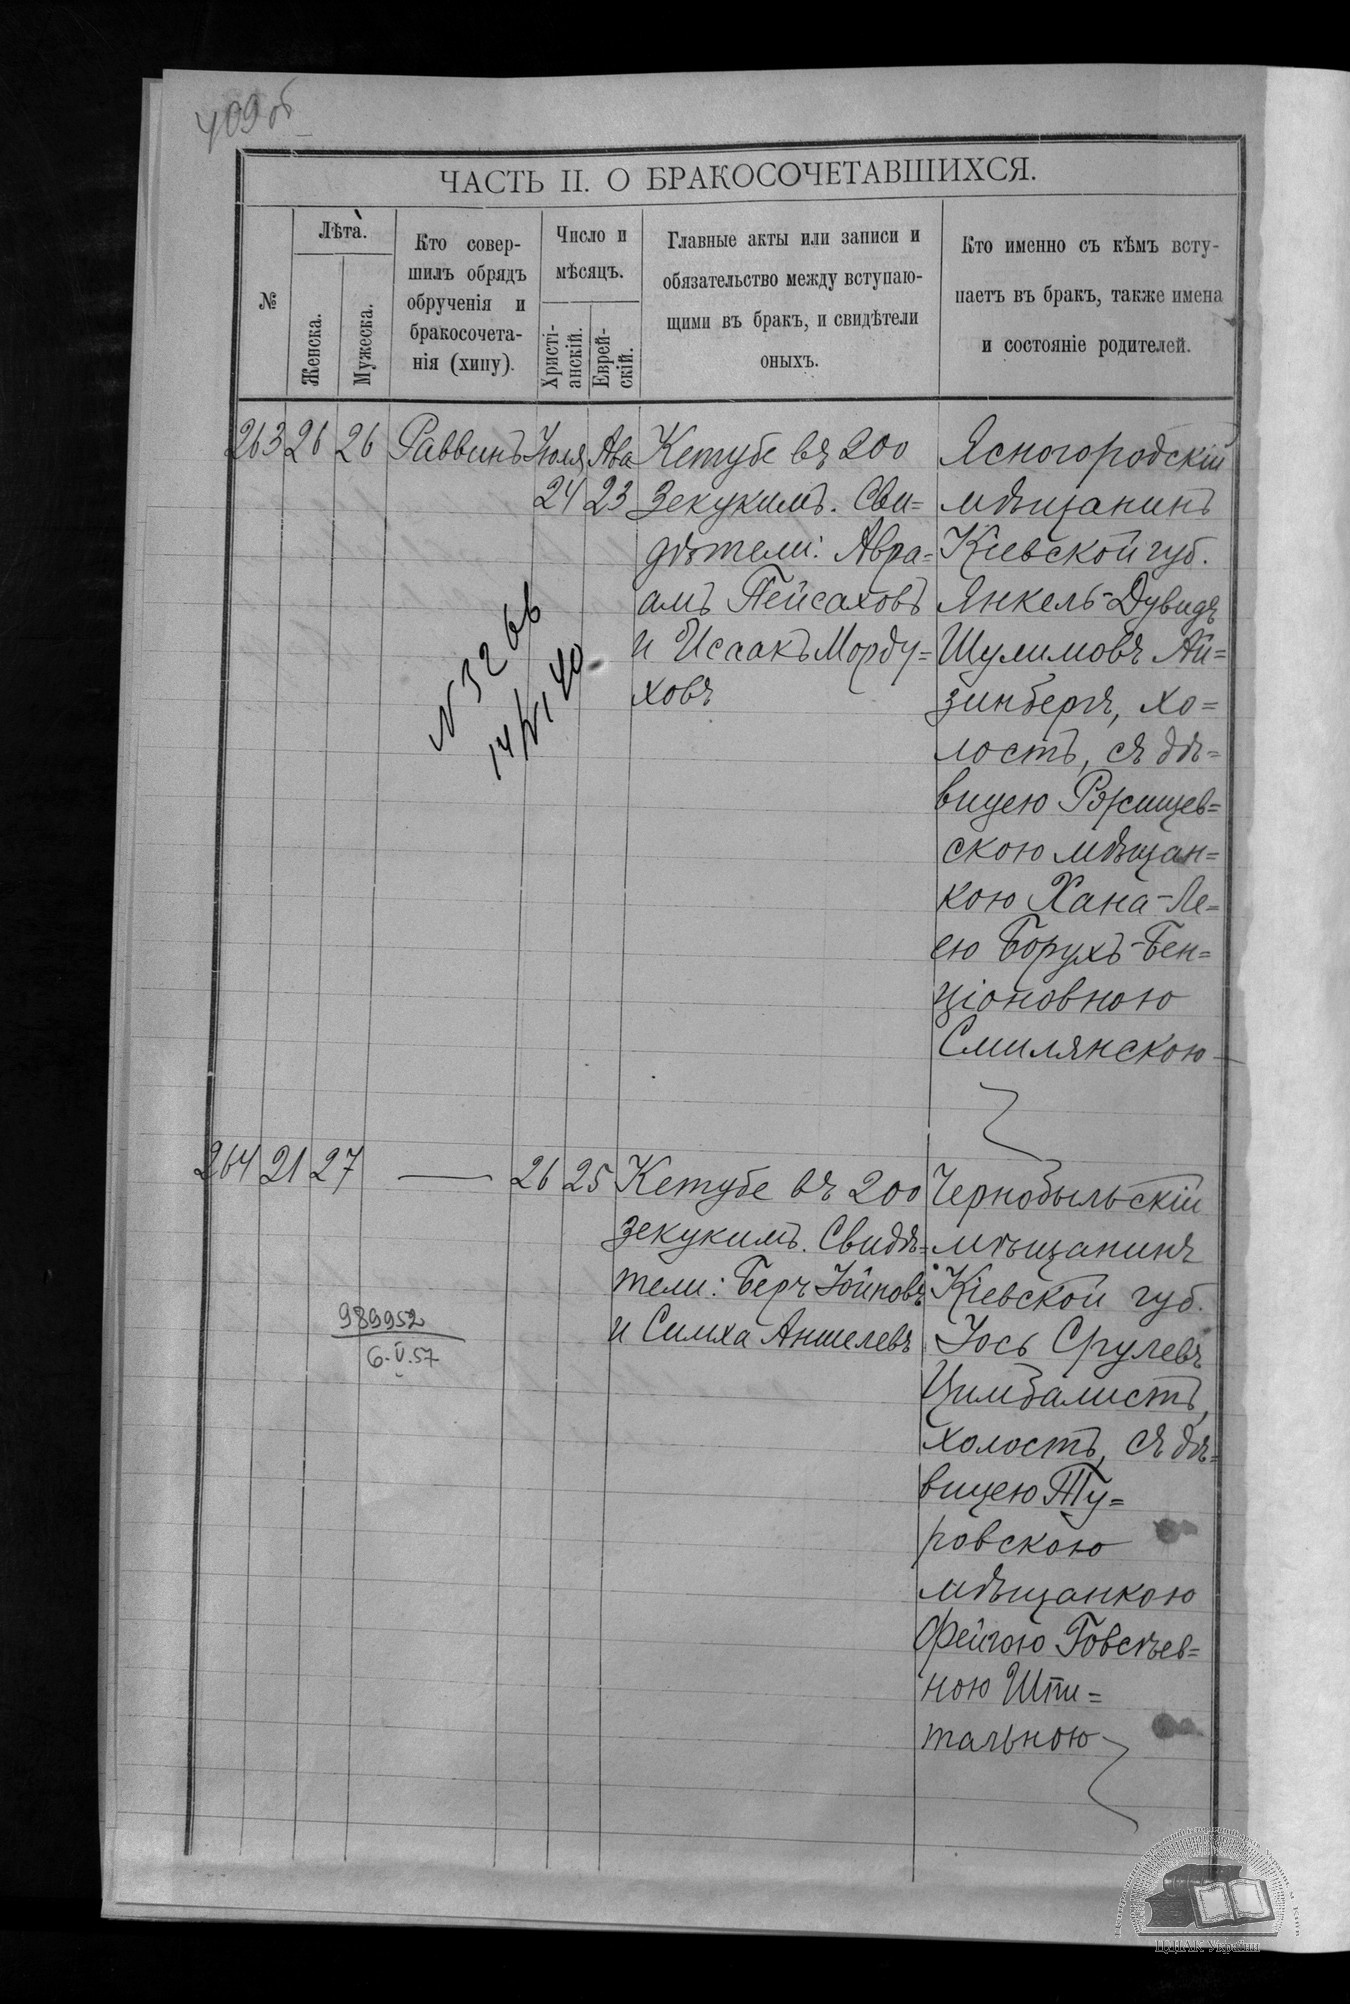 409об
ЧАСТЬ II. О БРАКОСОЧЕТАВШИХСЯ.
№
Лѣта.
Женска.
Мужеска.
Кто совер-
шилъ обрядъ
обрученія и
бракосочета-
нія (хипу).
Число и
мѣсяцъ.
Христі-
анскій.
Еврей-
скій.
Главные акты или записи и
обязательство между вступаю-
щими въ бракъ, и свидѣтели
оныхъ.
Кто именно съ кѣмъ всту-
паетъ въ бракъ, также имена
и состояніе родителей.
263 26 26 Раввинъ Июля 24 Ава 23
Кетубе въ 200
зекукимъ. Сви=
дѣтели: Авра=
амъ Пейсаховъ
и Исаакъ Морду=
ховъ
Ясногородскій
мѣщанинъ
Кіевской губ.
Янкель-Дувидъ
Шулимовъ Ай=
зинбергъ, хо=
лостъ, съ дѣ=
вицею Ржищев=
скою мѣщан=
кою Хана-Ле=
ею Борухъ-Бен=
ціоновною
Смилянскою
N 3266
14/VI 40.
264 21 27 — 26 25
Кетубе въ 200
зекукимъ. Свидѣ=
тели: Беръ Іойновъ
и Симха Аншелевъ
Чернобыльскій
мѣщанинъ
Кіевской губ.
Іось Срулевъ
Цимбалистъ,
холостъ, съ дѣ=
вицею Ту=
ровскою
мѣщанкою
Фейгою Говсѣев=
ною Шпи=
тальною
989952
6.V.57
ЦДІАК України